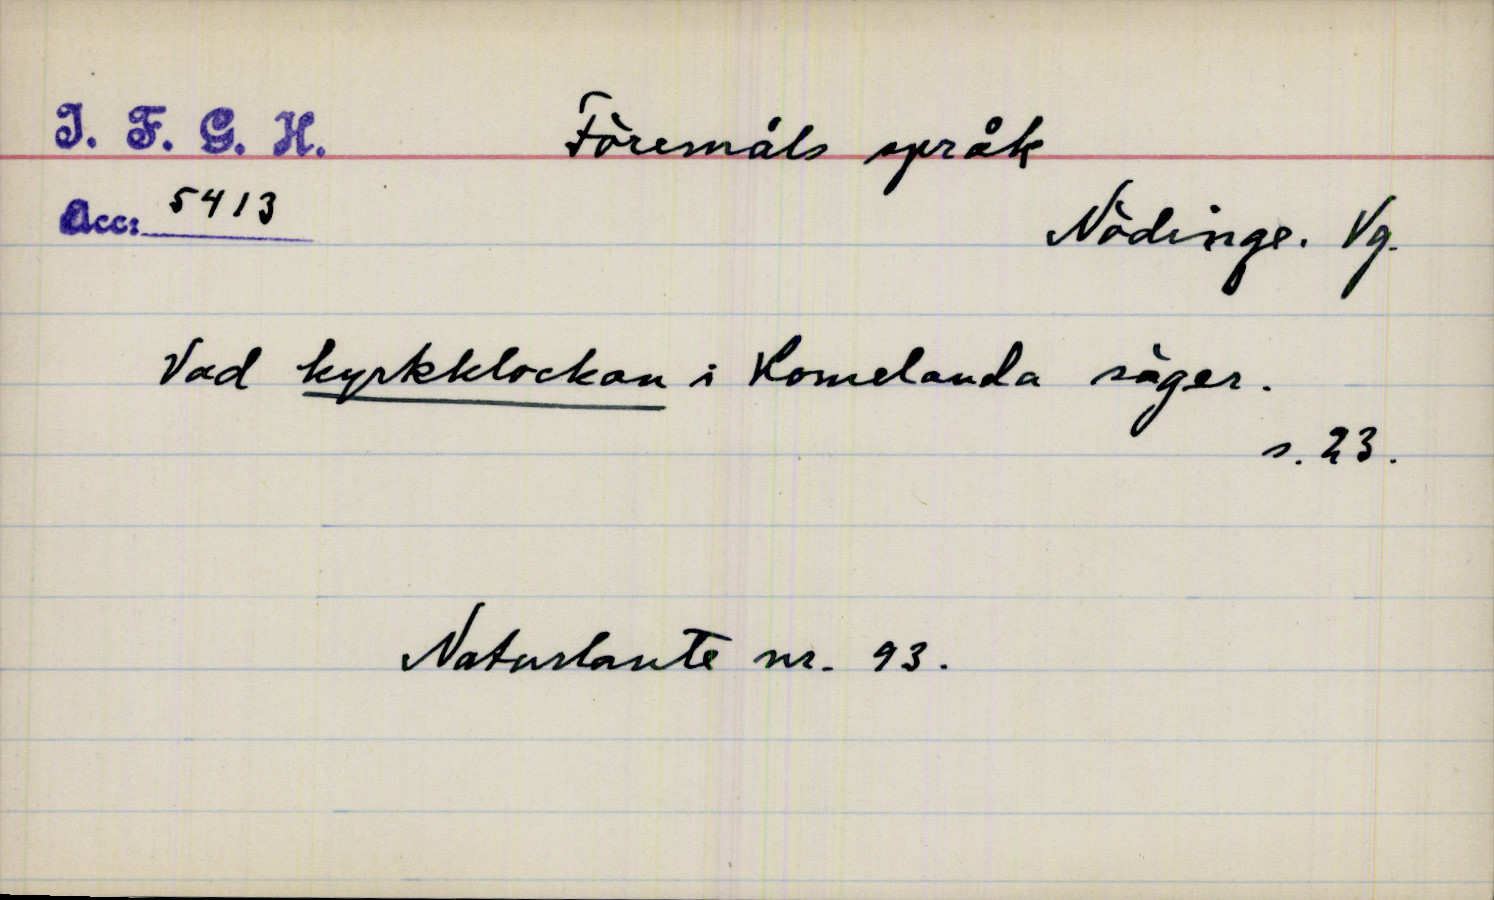 I. F. G. H.
Föremåls språk
Acc: 5413
Nödinge. Vg.
Vad kyrkklockan i Romelanda säger.
s. 23.
Naturlaute nr. 93.